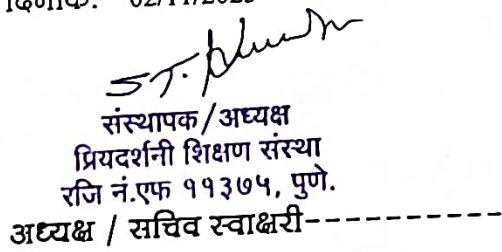 दिनांक: 02/11/2023
संस्थापक/अध्यक्ष
प्रियदर्शनी शिक्षण संस्था
रजि नं.एफ ११३७५, पुणे.
अध्यक्ष / सचिव स्वाक्षरी-----------